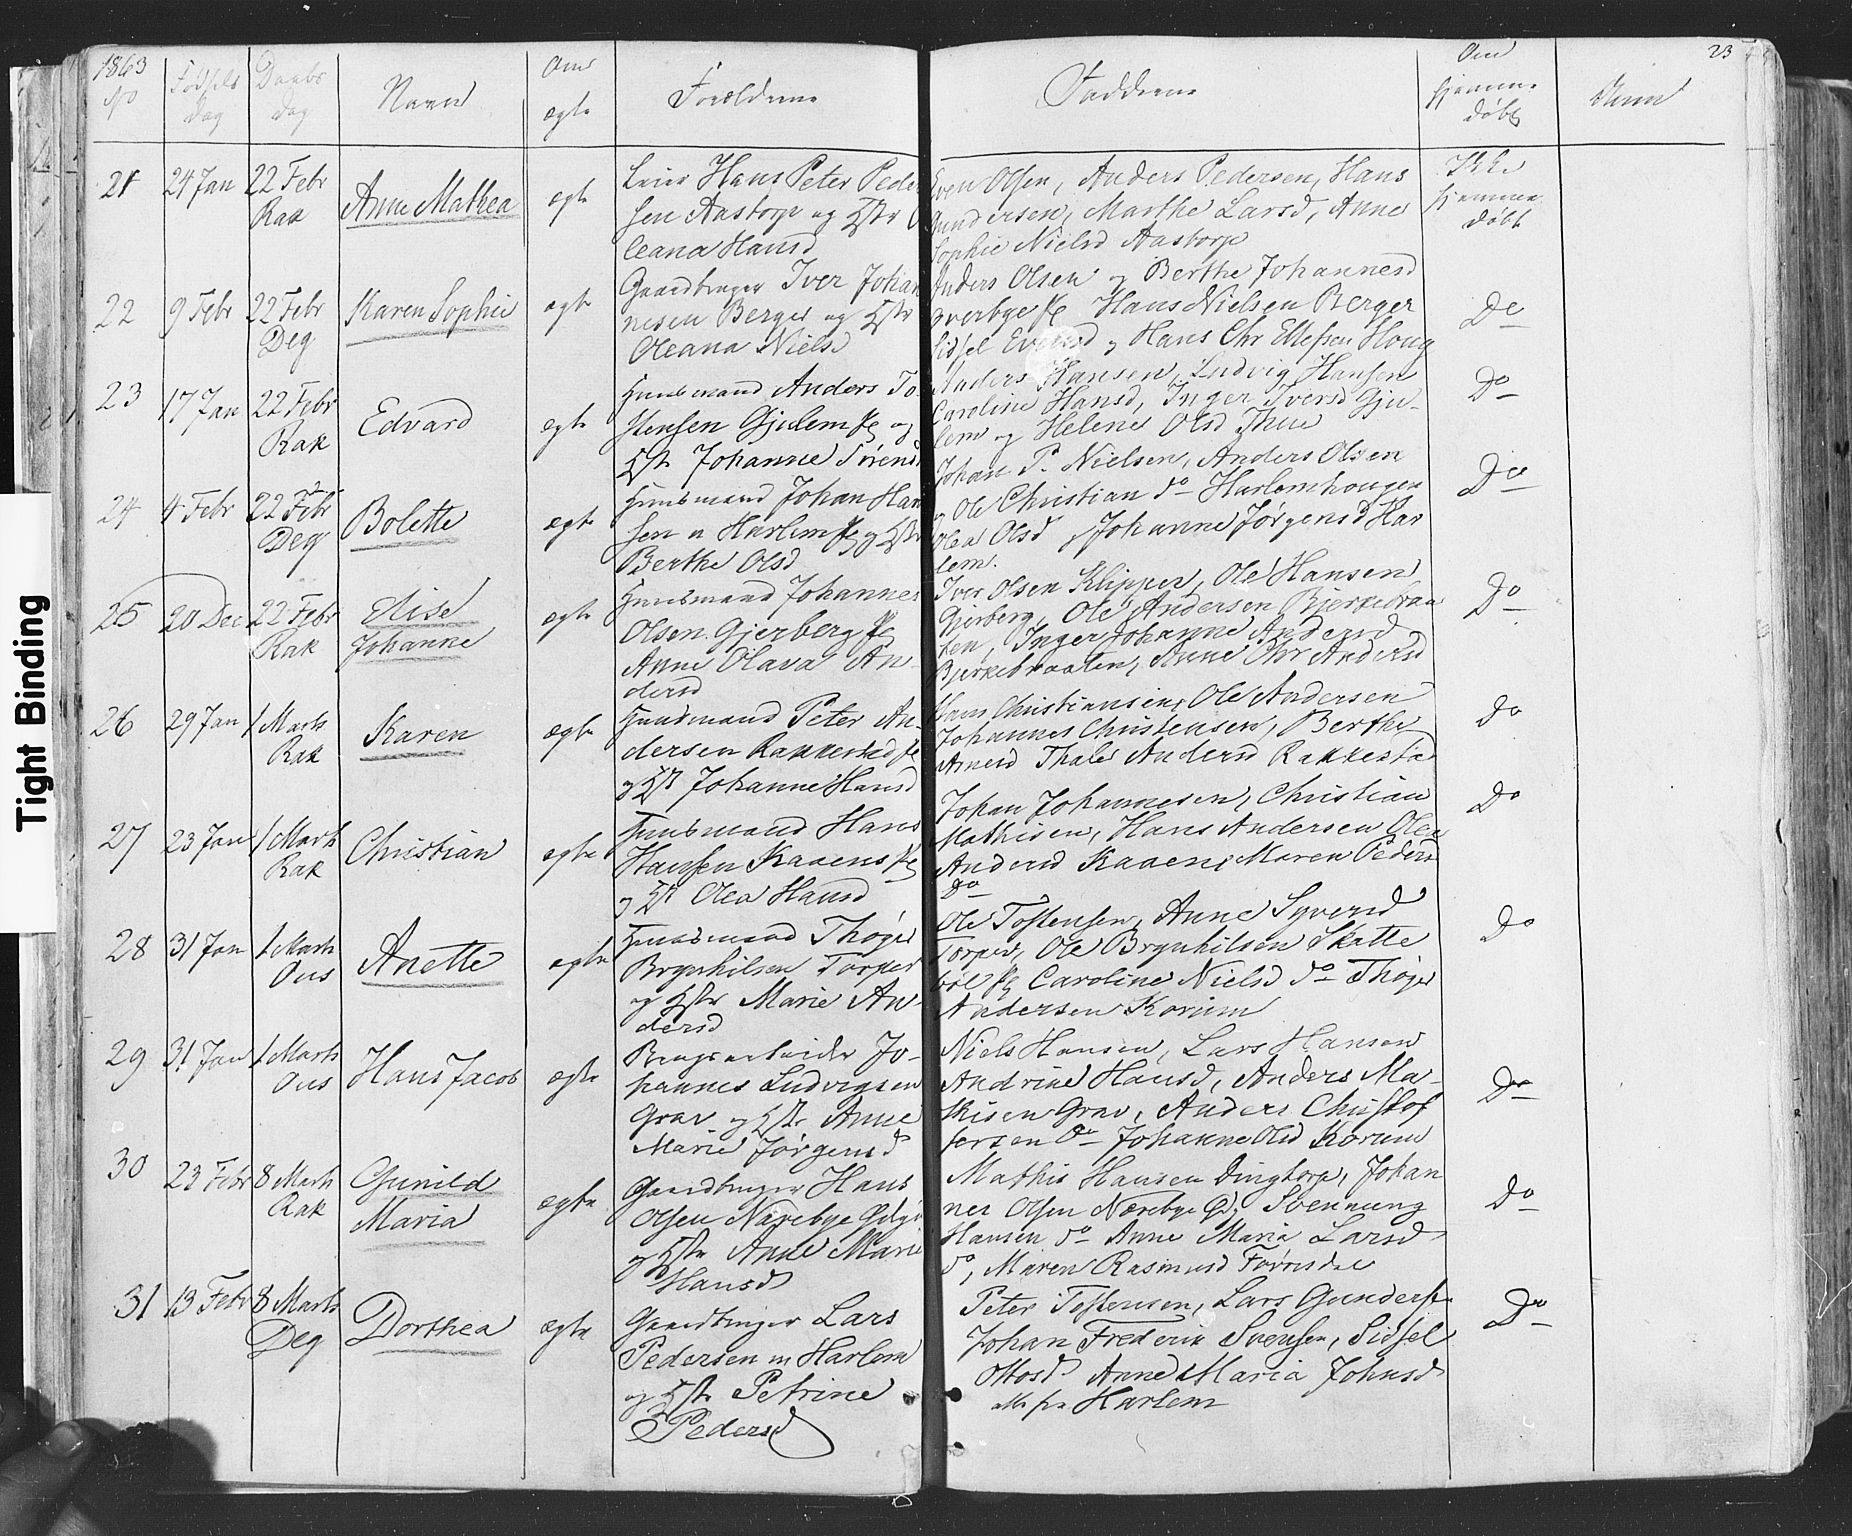 1863
No
Fødsels
dag
Daabs
dag
Navn
Om
ægte
Forældrene
Fadderne
Om
hjemme
døbt
Anm
23
21 24 Jan 22 Febr
Rak
Anne Mathea
ægte
Leier Hans Peter Peder
sen Aastorp og Hstr O
leana Hansd
Even Olsen, Anders Pedersen, Hans
Gundersen, Marthe Larsd, Anne
Sophie Nielsd Aastorp
Ikke
hjemme
døbt
22 9 Febr 22 Febr
Deg
Karen Sophie
ægte
Gaardbruger Iver Johan
nesen Berger og Hstr
Oleana Nielsd
Anders Olsen og Berthe Johannesd
Overbye Hans Nielsen Berger
Sidsel Evensd og Hans Chr Ellefsen Houg
Do
23 17 Jan 22 Febr
Rak
Edvard
ægte
Huusmand Anders To
stensen Gjulem og
Hstr Johanne Sørensd
Anders Hansen, Ludvig Hansen
Caroline Hansd, Inger Iversd Gju-
lem og Helene Olsd Thue
Do
24 4 Febr 22 Febr
Deg
Bolette
ægte
Huusmand Johan Han
sen n Harlem og Hstr
Berthe Olsd
Johan P. Nielsen, Anders Olsen
og Ole Christian do Harlemhougen
Olea Olsd, Johanne Jørgensd Har
lem.
Do
25 20 Dec 22 Febr
Rak
Elise
Johanne
ægte
Huusmand Johannes
Olsen Gjerberg
Anne Olava An-
dersd
Iver Olsen Klipper, Ole Hansen
Gjerberg, Ole Andersen Bjerkebraa
ten, Inger Johanne Andersd
Bjerkebraaten, Anne Chr Andersd
Do
26 29 Jan 1 Marts
Rak
Karen
ægte
Huusmand Peter An-
dersen Rakkestad
og Hstr Johanne Hansd
Hans Christiansen, Ole Andersen
Johannes Christensen, Berthe
Arnesd Thale Andersd Rakkestad
Do
27 23 Jan 1 Marts
Rak
Christian
ægte
Huusmand Hans
Hansen Kaaens
og Hstr Olea Hansd
Johan Johannesen, Christian
Mathisen, Hans Andersen Olea
Andersd Kaaen, Maren Pedersd
Do
Do
28 31 Jan 1 Marts
Ous
Anette
ægte
Huusmand Thøger
Brynhilsen Torper
og Hstr Marie An-
dersd
Ole Tostensen, Anne Syversd
Torper, Ole Brynhilsen Skatte
bøl Caroline Nielsd do Thøger
Andersen Korum
Do
29 31 Jan 1 Marts
Ous
Hans Jacob
ægte
Brugsarbeider Jo-
hannes Ludvigsen
Grav og Hstr Anne
Marie Jørgensd
Niels Hansen, Lars Hansen
Andrine Hansd, Anders Ma-
thisen Grav, Anders Christof
fersen do Johanne Olsd Korum
Do
30 23 Febr 8 Marts
Rak
Gunild
Maria
ægte
Gaardbruger Hans
Olsen Nærebye
og Hstr Anne Marie
Hansd
Mathis Hansen Dingtorp, Johan
nes Olsen Nærebye Svennung
Hansen do Anne Maria Larsd
do, Maren Rasmusd
Do
31 13 Febr 8 Marts
Deg
Dorthea
ægte
Gaardbruger Lars
Pedersen m Harlem
og Hstr Petrine
Pedersd
Peter Tostensen, Lars Gunders
Johan Frederik Svensen, Sidsel
Ottosd Anne Maria Johnsd
alle fra Harlem
Do
Tight Binding